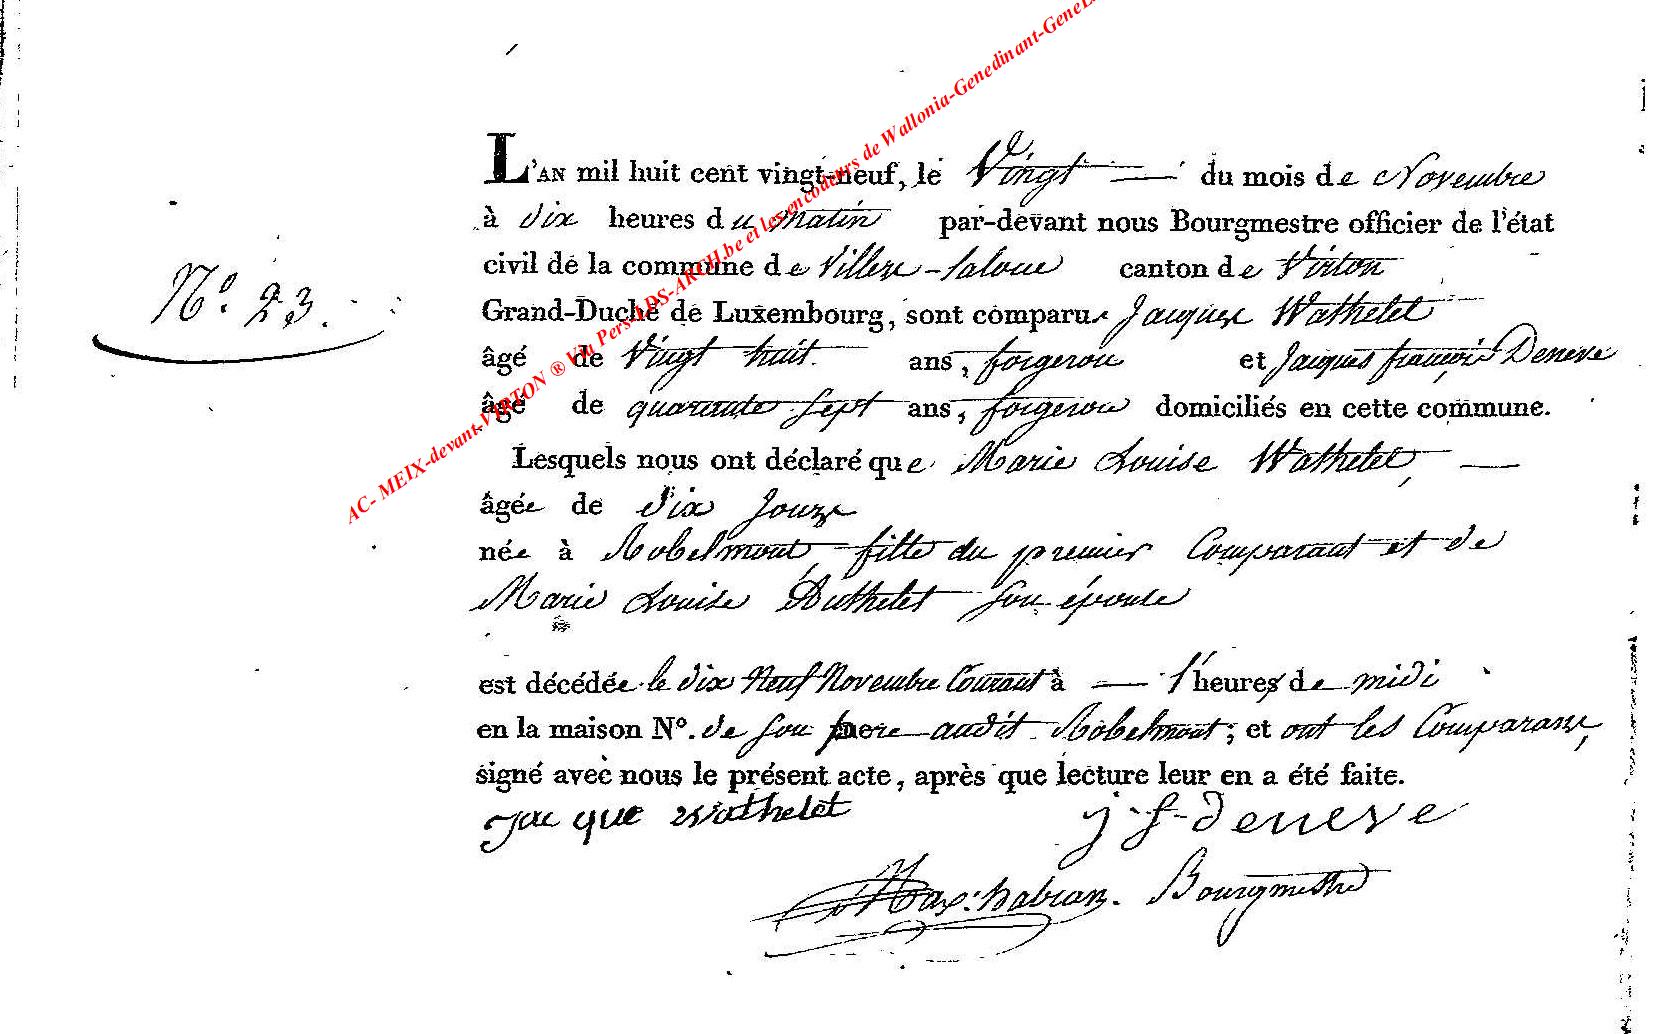 AC- MEIX-devant-VIRTON ® Via Pers-ADS-ARCH.be et les encodeurs de Wallonia-Genedinant-GeneL
L'AN mil huit cent vingt-neuf, le Vingt — du mois de Novembre
à dix heures du matin par-devant nous Bourgmestre officier de l'état
civil de la commune de Villere-Laloue canton de Virton
Nº. 23.
Grand-Duché de Luxembourg, sont comparus Jacques Wathelet
âgé de Vingt huit ans, forgeron et Jacques françois Deneve
âgé de quarante Sept ans, forgeron domiciliés en cette commune.
Lesquels nous ont déclaré que Marie Louise Wathelet, —
âgée de dix Jours
née à Robelmont, fille du premier Comparant et de
Marie Louise Buthelet Son épouse
est décédée le dix Neuf Novembre Courant à — l'heures de midi
en la maison Nº. de Son pere audit Robelmont; et ont les Comparans,
signé avec nous le présent acte, après que lecture leur en a été faite.
Jac que Wathelet j-f-deneve
Bourgmestre